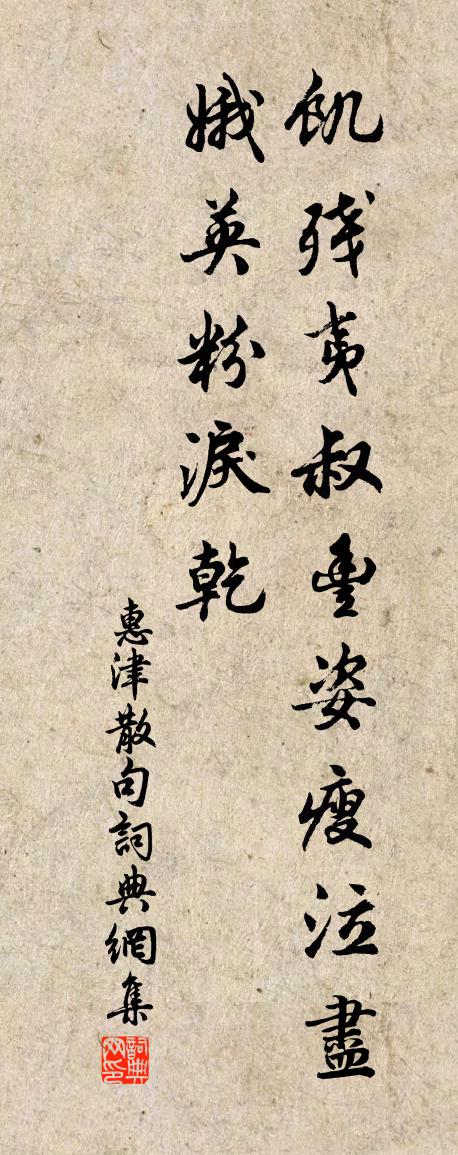 飢残夷叔豊姿瘦泣盡
娥英粉淚乾
惠津散句詞典網集
詞典网印